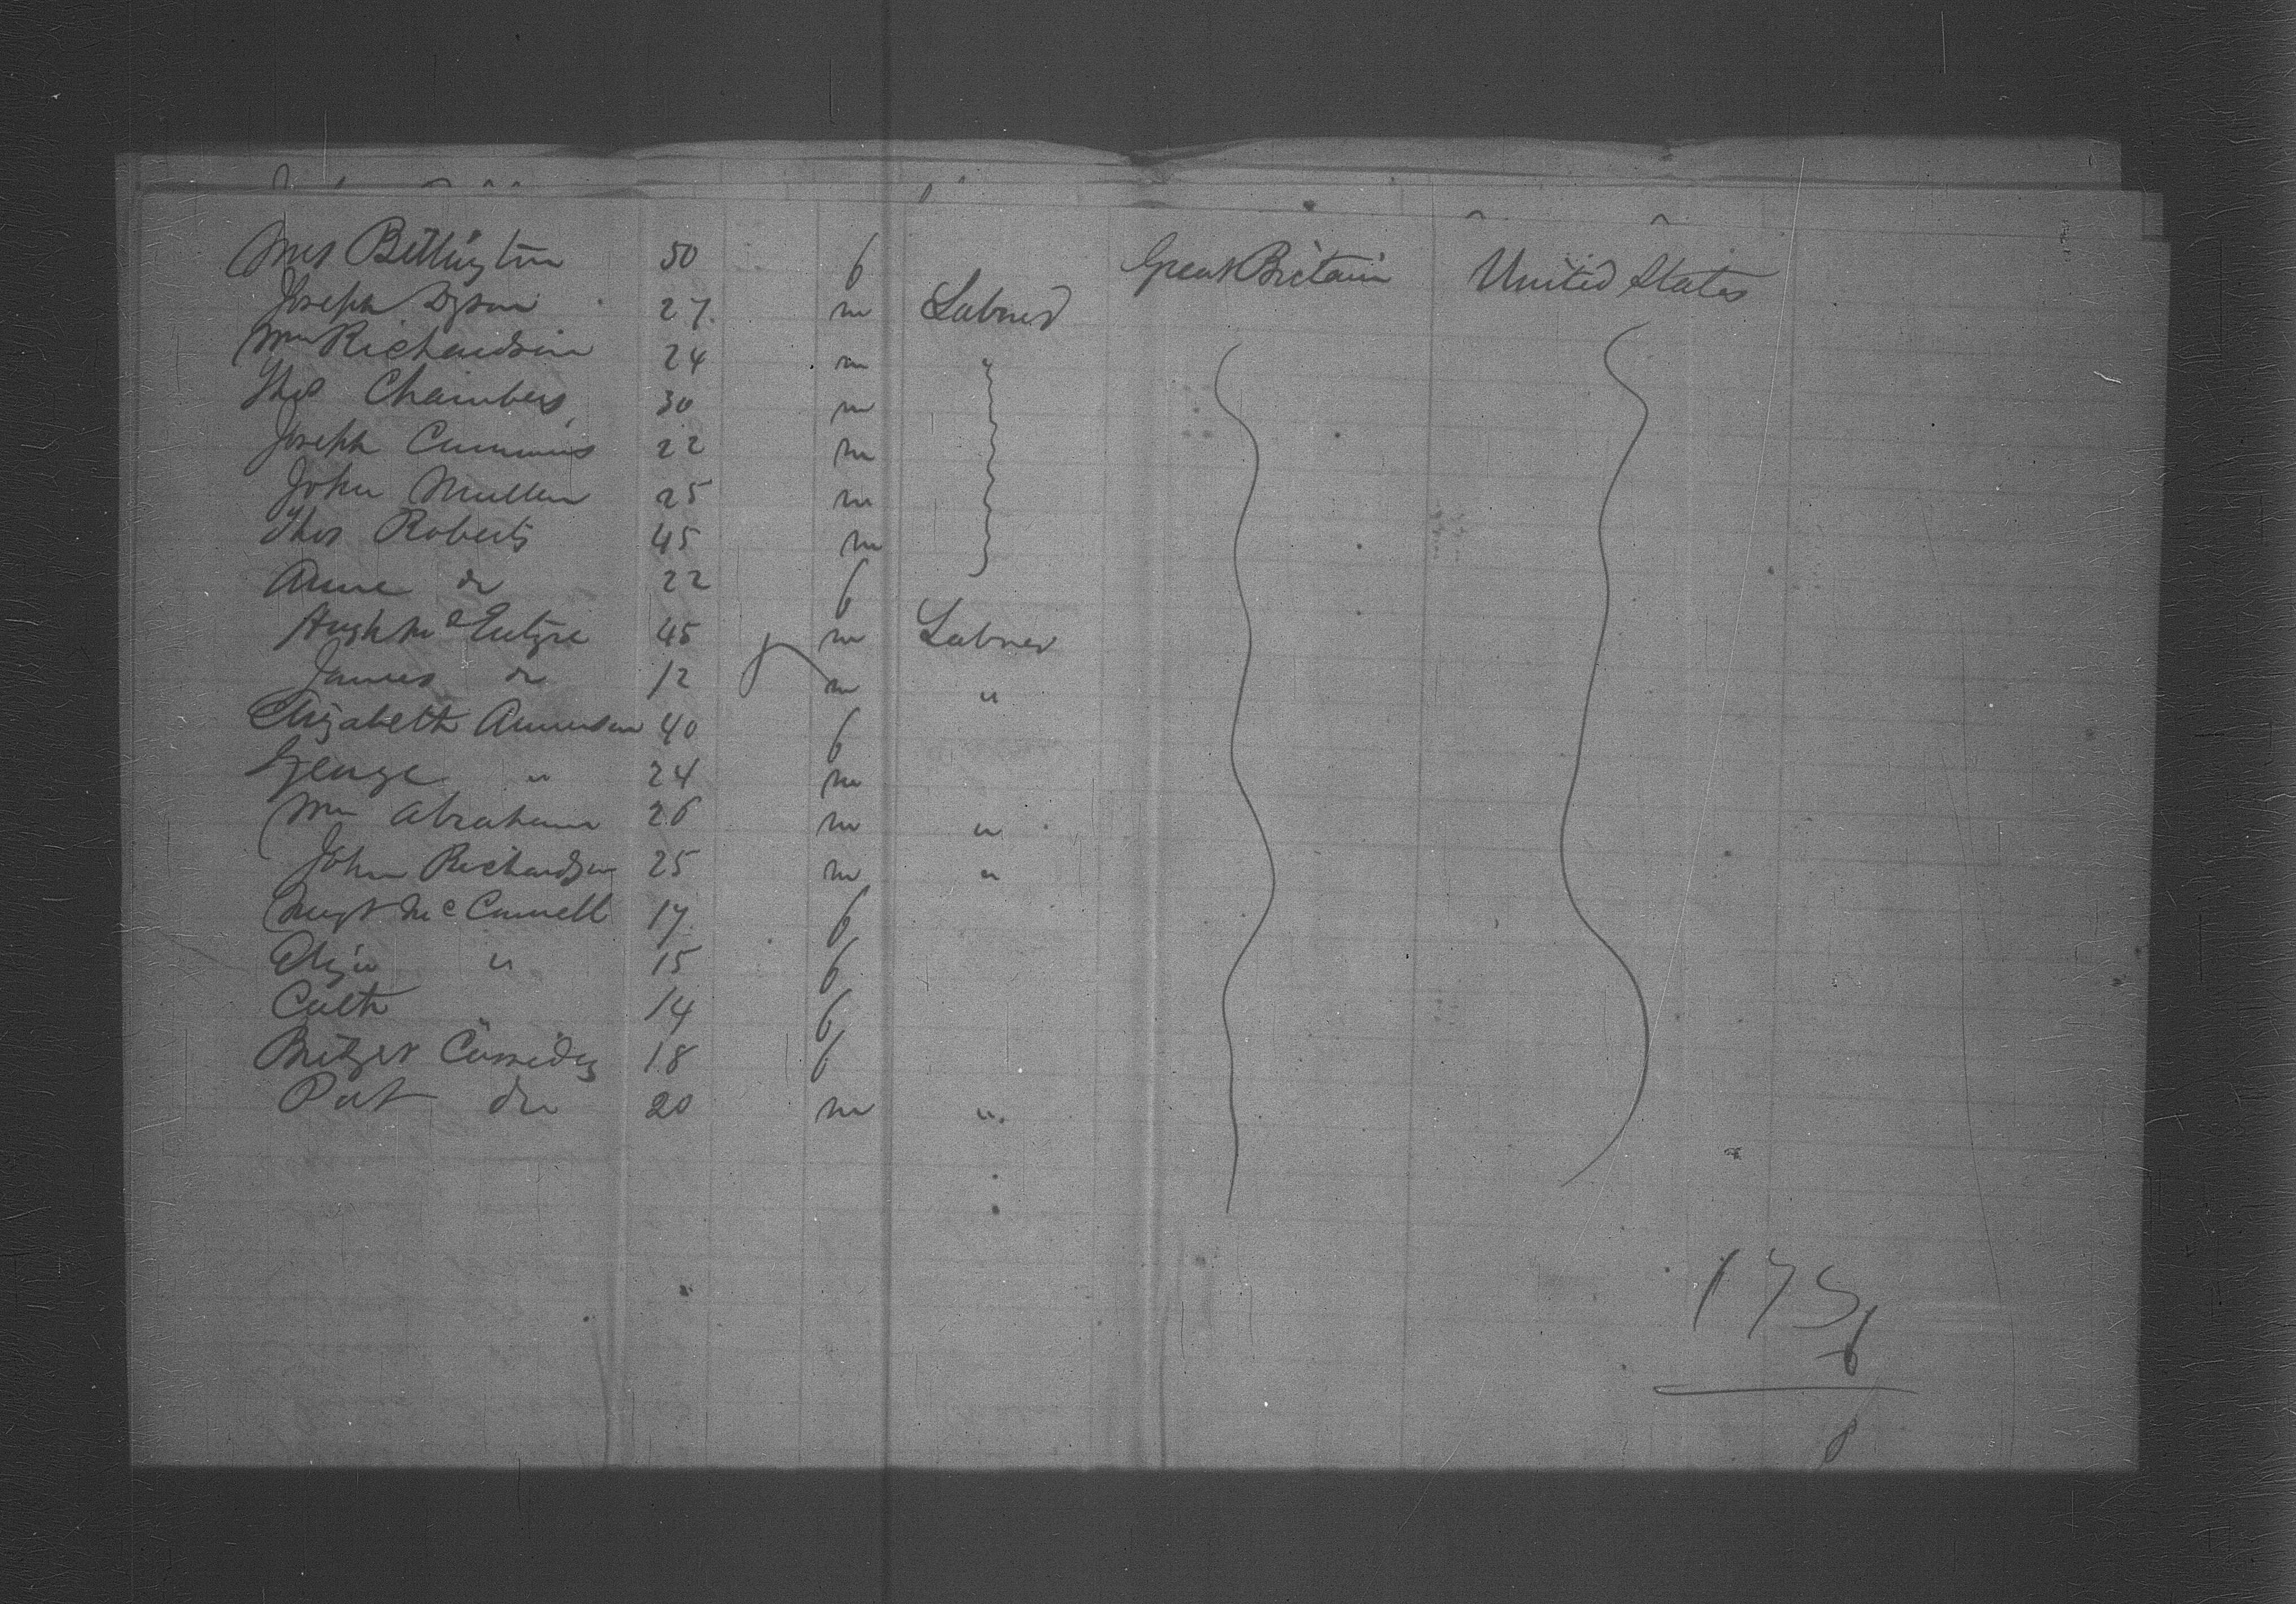 Mrs Billington 50 f Great Britain United States
Joseph Dyson 27. m Labrer
Wm Richardson 24 m "
Thos Chambers 30 m
Joseph Cummins 22 m
John Mullen 25 m
Thos Roberts 45 m
Anne do 22 f
Hugh McEntyre 45 m Labrer
James do 12 m "
Elizabeth 40 f
George " 24 m
Wm Abraham 26 m "
John Richardson 25 m "
Margt McConnell 17. f
Eliza " 15 f
Cath 14 f
Bridget Cassidy 18 f
Pat do 20 m "
175